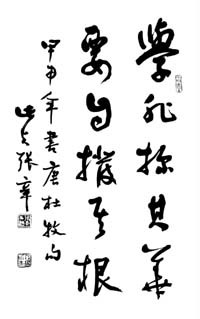 學非探其華
要自撥其根
甲申年書唐杜牧句
張辛